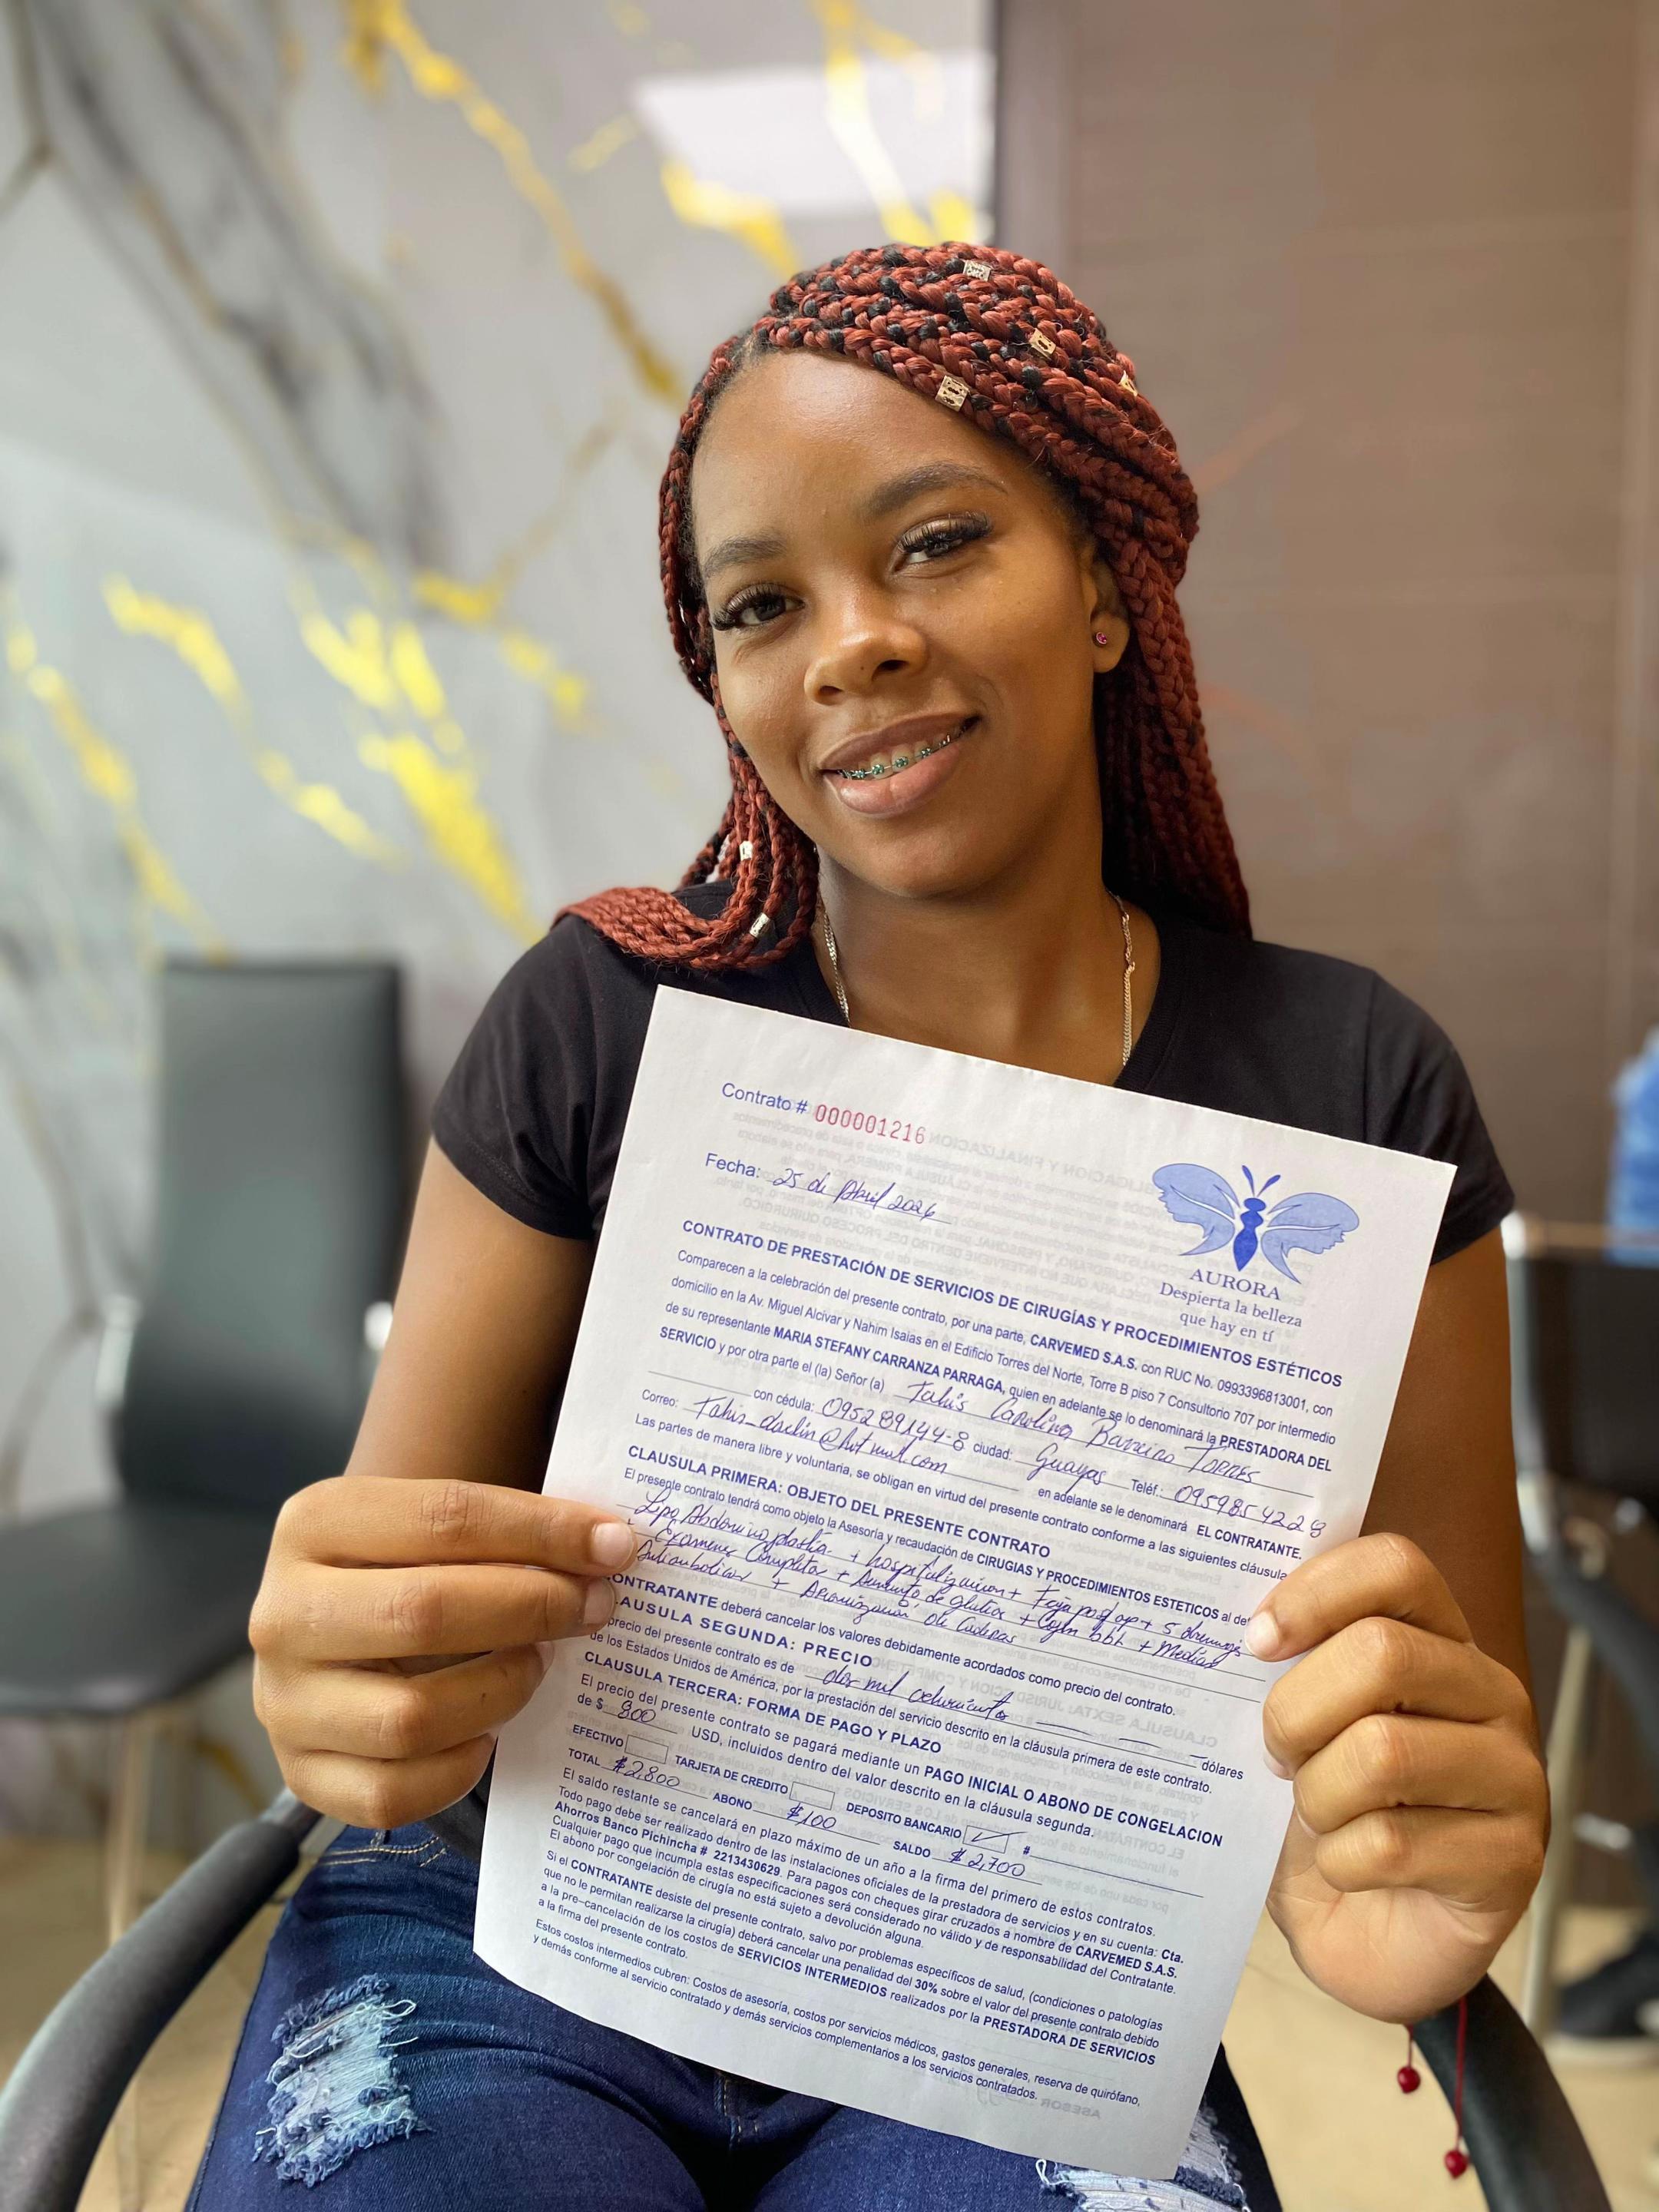 Contrato # 000001216
Fecha: 25 de Abril 2024
AURORA
Despierta la belleza
que hay en tí
CONTRATO DE PRESTACIÓN DE SERVICIOS DE CIRUGÍAS Y PROCEDIMIENTOS ESTÉTICOS
Comparecen a la celebración del presente contrato, por una parte, CARVEMED S.A.S. con RUC No. 0993396813001, con
domicilio en la Av. Miguel Alcivar y Nahim Isaias en el Edificio Torres del Norte, Torre B piso 7 Consultorio 707 por intermedio
de su representante MARIA STEFANY CARRANZA PARRAGA, quien en adelante se lo denominará la PRESTADORA DEL
SERVICIO y por otra parte el (la) Señor (a) Carolina Barreiro TORRES
con cédula: 095289144-8 ciudad: Guayas Teléf.: 0959854228
Correo: @hotmail.com en adelante se le denominará EL CONTRATANTE.
Las partes de manera libre y voluntaria, se obligan en virtud del presente contrato conforme a las siguientes cláusula
CLAUSULA PRIMERA: OBJETO DEL PRESENTE CONTRATO
El presente contrato tendrá como objeto la Asesoría y recaudación de CIRUGIAS Y PROCEDIMIENTOS ESTETICOS al det
Lipo Abdominoplastia + hospitalizacion + Faja post op + 5 drenajes
+ Examenes Completos + Aumento de gluteos + Cojin bbl + Medias
Antiembolicas + Armonización de Caderas
CONTRATANTE deberá cancelar los valores debidamente acordados como precio del contrato.
CLAUSULA SEGUNDA: PRECIO
precio del presente contrato es de dos mil ochocientos dólares
de los Estados Unidos de América, por la prestación del servicio descrito en la cláusula primera de este contrato.
CLAUSULA TERCERA: FORMA DE PAGO Y PLAZO
El precio del presente contrato se pagará mediante un PAGO INICIAL O ABONO DE CONGELACION
de $ 800 USD, incluidos dentro del valor descrito en la cláusula segunda.
EFECTIVO TARJETA DE CREDITO DEPOSITO BANCARIO ✓ #
TOTAL $2,800 ABONO $100 SALDO $2,700
El saldo restante se cancelará en plazo máximo de un año a la firma del primero de estos contratos.
Todo pago debe ser realizado dentro de las instalaciones oficiales de la prestadora de servicios y en su cuenta: Cta.
Ahorros Banco Pichincha # 2213430629. Para pagos con cheques girar cruzados a nombre de CARVEMED S.A.S.
Cualquier pago que incumpla estas especificaciones será considerado no válido y de responsabilidad del Contratante.
El abono por congelación de cirugía no está sujeto a devolución alguna.
Si el CONTRATANTE desiste del presente contrato, salvo por problemas específicos de salud, (condiciones o patologías
que no le permitan realizarse la cirugía) deberá cancelar una penalidad del 30% sobre el valor del presente contrato debido
a la pre-cancelación de los costos de SERVICIOS INTERMEDIOS realizados por la PRESTADORA DE SERVICIOS
a la firma del presente contrato.
Estos costos intermedios cubren: Costos de asesoría, costos por servicios médicos, gastos generales, reserva de quirófano,
y demás conforme al servicio contratado y demás servicios complementarios a los servicios contratados.